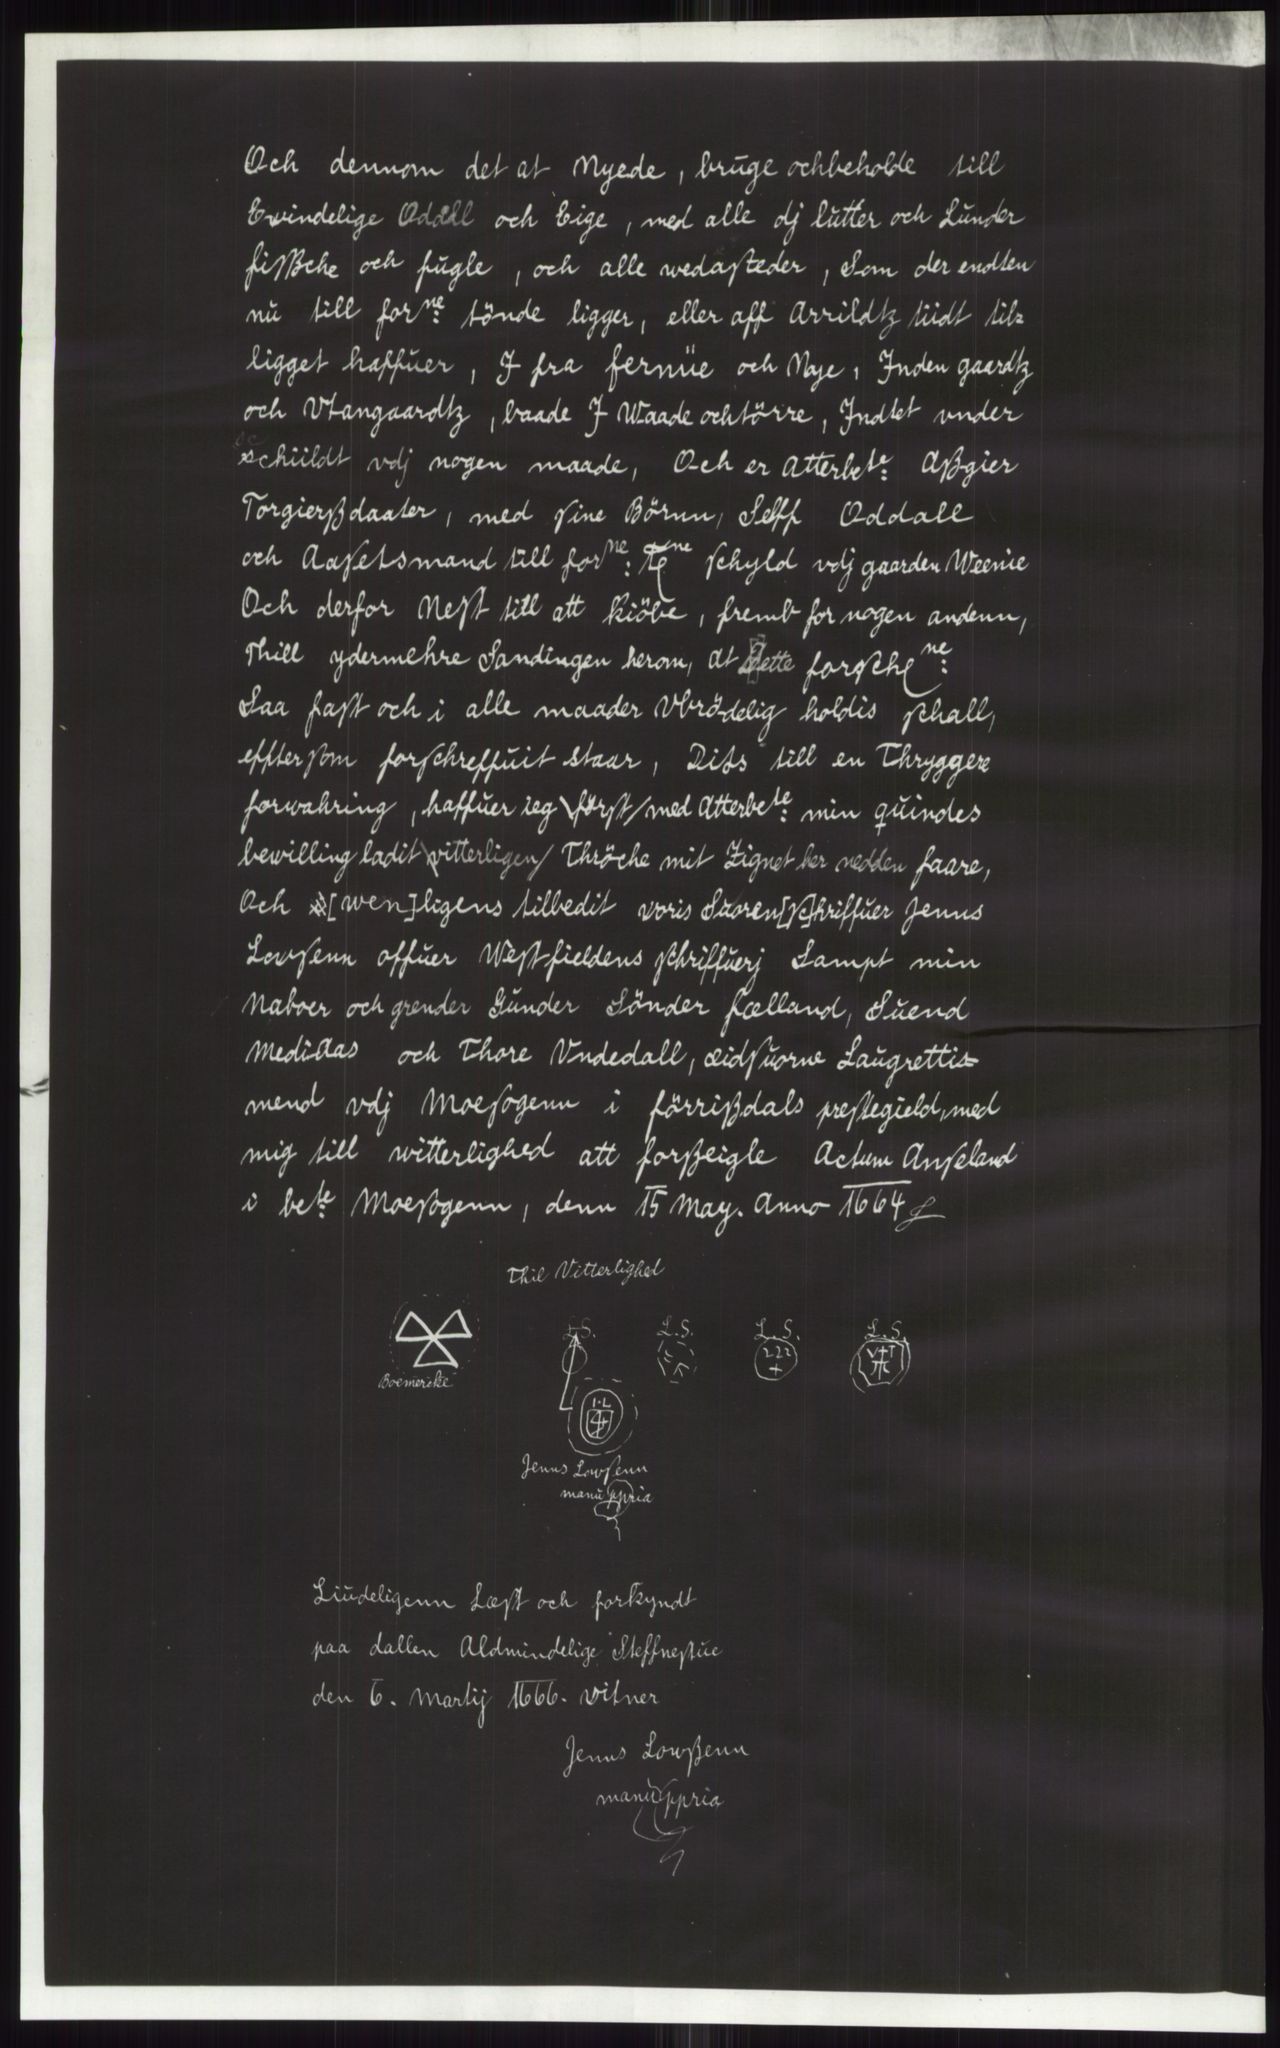 Och dennom det at Nyede, bruge ochbeholde till
Ewindelige Odall och Eige, med alle dj lutter och Lunder
fisßche och fugle, och alle wedasteder, Som der endten
nu till forne: tönde ligger, eller aff Arrildtz tiidt til=
ligget haffuer, J fra fernüe och Naje, Jnden gaardtz
och Vtangaardtz, baade J Waade ochtörre, Jndtet vnder
schiildt vdj nogen maade, Och er Atterbete: Aßgier
Torgierßdaater, med sine Börnn, Selff Oddall
och Aasetsmand till forne: schyld vdj gaarden Weenie
Och derfor Nest till att kiöbe, fremb for nogen andenn,
Thill ydermehre Sandingen herom, At dette forschne:
Saa fast och i alle maader Vbrödelig holdis schall,
effter som forschreffuit staar, Dits till en Thryggere
forwahring, haffuer ieg \först/ med Atterbete: min quindes
bewilling ladit \vitterligen/ Thröche mit Zignet her nedden faare,
Och [wen]ligens tilbedit voris Suoren[sc]hriffuer Jenns
Lowsenn offuer Westfieldens schriffuerj Sampt min
Naboer och grender Gunder Sönder fælland, Suend
Medilaas och Thore Vndedall, æidsuorne Laugrettis=
mend vdj Moesogenn iförrißdals prestegield, med
mig till witterlighed att forßeigle Actum Anseland
i bete: Moesogenn, denn 15 May. Anno 1664
Thil Vitterlighed
L.S. L.S. L.S. L.S.
222
VTT
Boemercke
I·L
Jenns Lowsenn
manu ppria
Liudeligenn Læst och forkyndt
paa dallen Aldmindelige Steffnestue
den 6. Martij 1666. vitner
Jenns Lowßenn
manu ppria